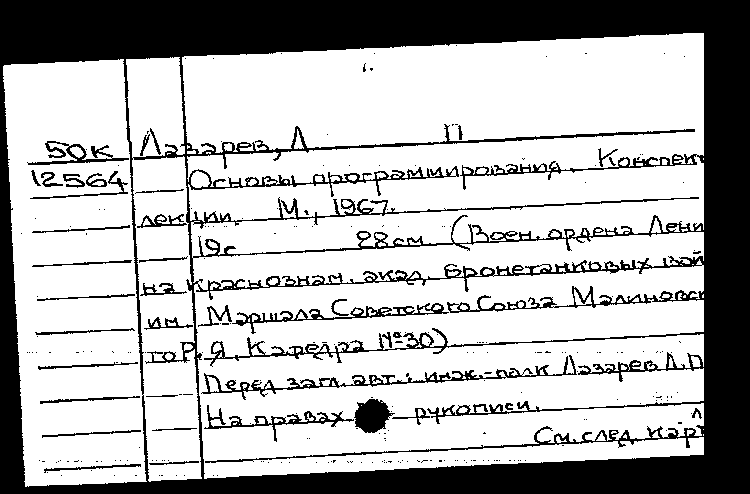 50к Лазарев, Л П
12564 Основы программирования. Конспек
лекции. М., 1967.
19с 28см (Воен. ордена Лени
на краснознам. акад. бронетанковых вой
им. Маршала Советского Союза Малиновск
го Р. Я. Кафедра №30)
Перед загл. авт.: инж.-полк Лазарев Л.П
На правах рукописи.
См. след. карт